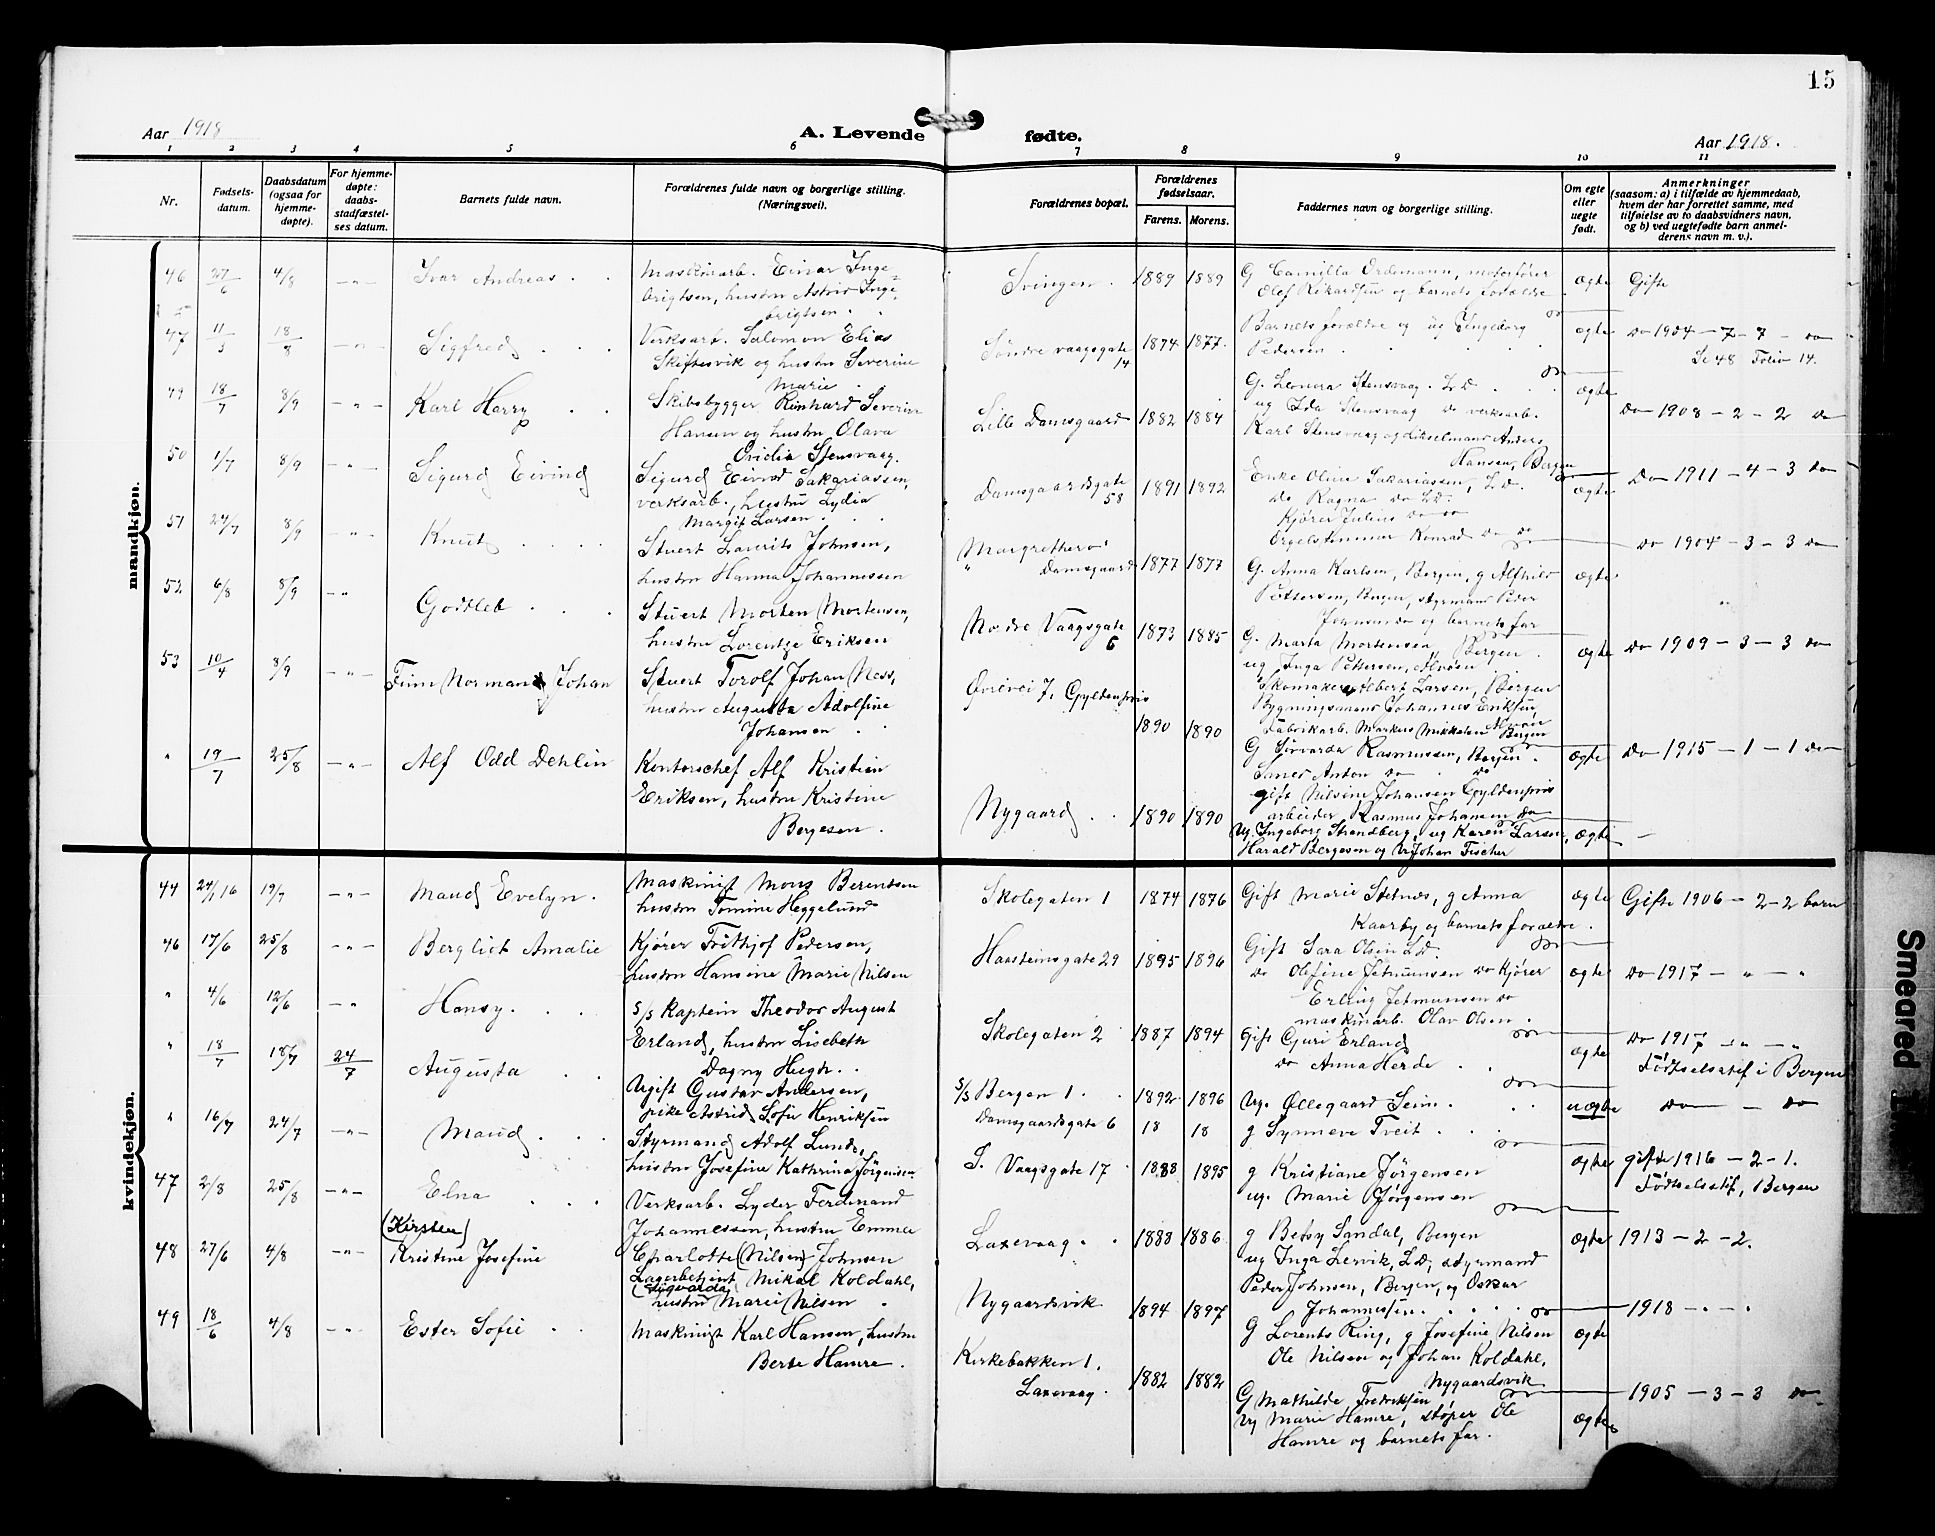 15
Aar 1918
A. Levende fødte.
Aar 1918.
1 2 3 4 5 6 7 8 9 10 11
Nr.
Fødsels-
datum.
Daabsdatum
(ogsaa for
hjemme-
døpte).
For hjemme-
døpte:
daabs-
stadfæstel-
ses datum.
Barnets fulde navn.
Forældrenes fulde navn og borgerlige stilling.
(Næringsvei).
Forældrenes bopæl.
Forældrenes
fødselsaar.
Farens. Morens.
Faddernes navn og borgerlige stilling.
Om egte
eller
uegte
født.
Anmerkninger
(saasom: a) i tilfælde av hjemmedaab,
hvem der har forrettet samme, med
tilføielse av to daabsvidners navn,
og b) ved uegtefødte barn anmel-
derens navn m. v.).
mandkjøn.
46 27/6 4/8 -"- Ivar Andreas
Maskinarb. Einar Inge-
brigtsen, hustru Astrid Inge-
brigtsen
Svingen. 1889 1889
G Camilla Ordemann, motorfører
Olef Rikardsen og barnets forældre
ægte Gifte
47 11/3 18/8 -"- Sigfred
Verksarb. Salomon Elias
Skiftesvik og hustru Severine
Marie
Søndre vaagsgate
14
1874 1877.
Barnets forældre og ug Ingeborg
Pedersen
ægte do 1904 - 7 - 7 - do
Se 48 Folio 14.
49 18/7 8/9 -"- Karl Harry
Skibsbygger Reinhard Severin
Hansen og hustru Olava
Ovidia Stensvaag.
Lille Damsgaard 1882 1884
G. Leonora Stensvaag. L.D.
ug Ida Stensvaag do verksarb.
Karl Stensvaag og Anders
Hansen, Bergen
ægte do 1908 - 2 - 2 do
50 1/7 8/9 -"- Sigurd Eivind
Sigurd Eivind Sakariassen,
verksarb., hustru Lydia
Margit Larsen
Damsgaardsgate
58
1891 1892
Enke Oline Sakariassen, L.D.
do Ragna do L.D.
Kjører Julius do do
Orgelstemmer Konrad do do
ægte do 1911 - 4 - 3 do
51 24/7 8/9 -"- Knut
Stuert Laurits Johnsen,
hustru Hanna Johannessen
Damsgaard 1877 1877
G. Anna Karlsen, Bergen, g Alfhild
Pettersen, styrmand Peder
Johnsen do og barnets far
ægte do 1904 - 3 - 3 do
52 6/8 8/9 -"- Godtleb
Stuert Morten Mortensen,
hustru Lorentze Eriksen
Nordre Vaagsgate
6
1873 1885
G. Marta Mortensen, Bergen
ug Inga Pettersen,
Skomaker Albert Larsen, Bergen
Johannes Eriksen
Fabrikarb. Markus Mikkelsen Bergen
ægte do 1909 - 3 - 3 do
53 10/4 8/9 -"- Finn Norman Johan
Stuert Torolf Johan Ness,
hustru Augusta Adolfine
Johansen
Øvrevei 7, Gyldenpris
1890 1890
G Sirvarda Rasmussen, Bergen.
Anton do do
gift Nilsine Johansen Gyldenpris
arbeider Rasmus Johansen do
ægte do 1915 - 1 - 1 do
" 19/7 25/8 -"- Alf Odd Dehlin
Kontorschef Alf Kristian
Eriksen, hustru Kristine
Bergesen.
Nygaard 1890 1890
Ug. Ingeborg Strandberg, ug Karen Larsen,
Harald Bergesen og Johan Fischer
ægte -
kvindekjøn.
44 24/1 16 19/7 -"- Maud Evelyn.
Maskinist Mons Berentsen
hustru Tomine Heggelund
Skolegaten 1 1874 1876
Gift Marie Stetnes, g Anna
Kaarby og barnets forældre.
ægte Gifte 1906 - 2 - 2 barn
46 17/6 25/8 -"- Bergliot Amalie
Kjører Frithjof Pedersen,
hustru Hansine Marie Nilsen
Haasteinsgate 29 1895 1896
Gift Sara Olsen L.D.
do Olefine Jetmunsen do Kjører
Erling Jetmunsen do
maskinarb. Olav Olsen.
ægte do 1917 - " - "
" 4/6 12/6 -"- Hansy.
S/S Kaptein Theodor August
Erland, hustru Lisebeth
Dagny Hugh.
Skolegaten 2 1887 1894
Gift Guri Erland
do Anna Herde
ægte do 1917 - " - "
Fødselsatt i Bergen
" 18/7 18/7 24/7 Augusta
Ugift Gustav Andersen,
pike Astrid Sofie Henriksen
S/S Bergen 1.
Damsgaardsgate 6
1892 1896
18 18
Ug. Øllegaard Seim.
g Synneve Tveit
uægte do - do
" 16/7 24/7 -"- Maud
Styrmand Adolf Lunde,
hustru Josefine Kathrina Jørgensen
S. Vaagsgate 17 1888 1895
g Kristiane Jørgensen
ug. Marie Jørgensen
ægte gifte 1916 - 2 - 1.
Fødselsatt, Bergen
47 2/8 25/8 -"- Elna
Verksarb. Lyder Ferdinand
Johannessen, hustru Emma
Charlotte (Nilsen) Johnsen
Laxevaag. 1888 1886
g Betsy Sandal, Bergen
ug Inga Lervik, L.D., styrmand
Peder Johnsen, Bergen, og Oskar
Johannessen
ægte 1913 - 2 - 2.
48 27/6 4/8 -"- (Kirsten)
Kristine Josefine
Lagerbetjent Mikal Koldahl,
(Sigvarda)
hustru Marie Nilsen
Nygaardsvik 1894 1897
G Lorents Ring, g Josefine Nilsen
Ole Nilsen og Johan Koldahl,
Nygaardsvik
ægte 1918 - . - .
49 18/6 4/8 -"- Ester Sofie
Maskinist Karl Hansen, hustru
Berte Hamre.
Kirkebakken 1.
Laxevaag.
1882 1882
G Mathilde Fredriksen
Ug Marie Hamre, støper Ole
Hamre og barnets far.
ægte 1905 - 3 - 3 do
Smeared